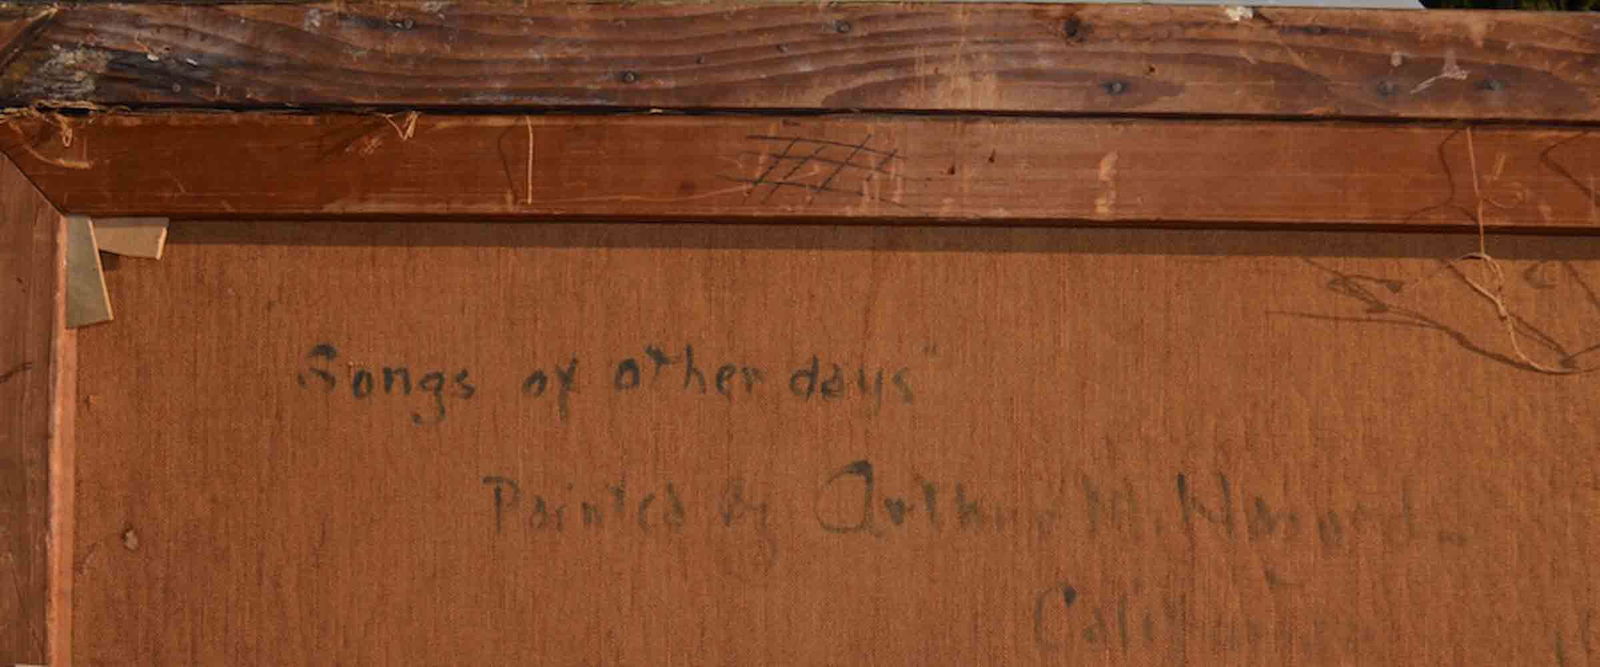 Songs of other days"
Painted by Arthur M. Hazard
California